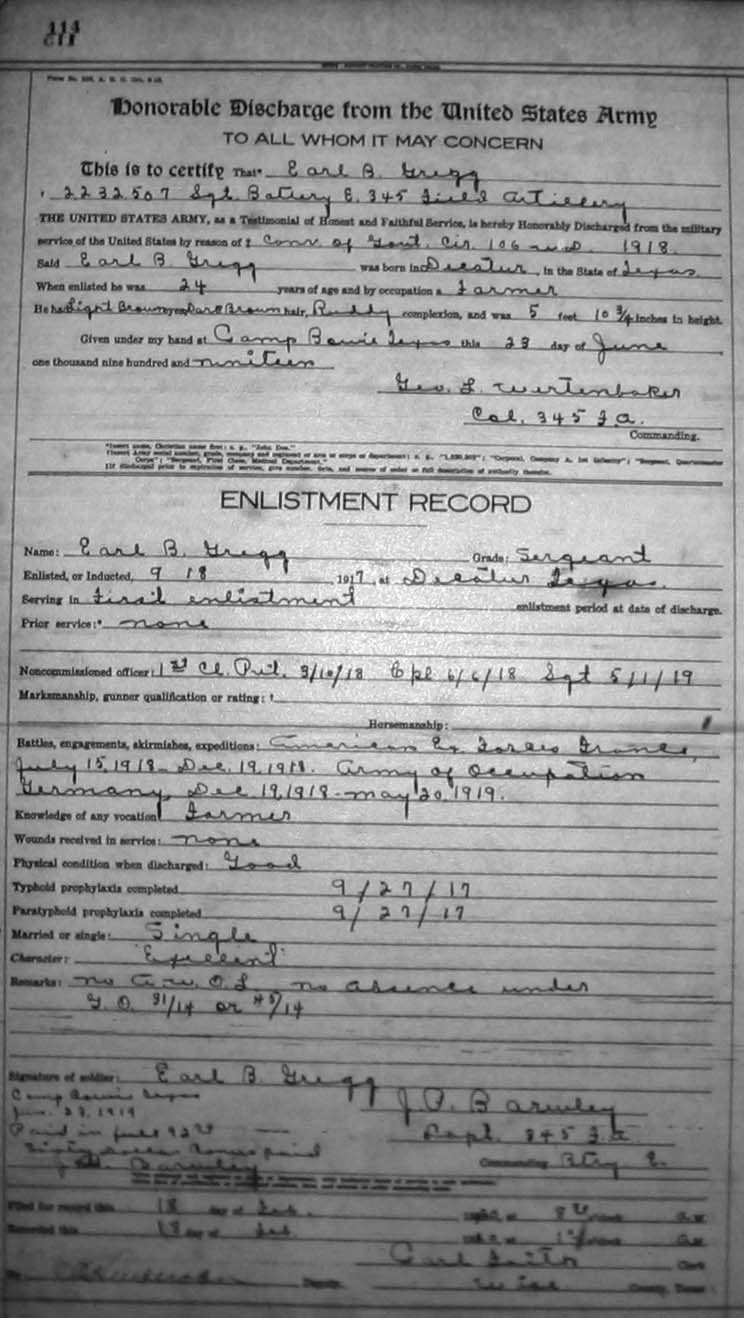 Honorable Discharge from the United States Army
TO ALL WHOM IT MAY CONCERN
This is to certify That* Earl B. Gregg
2232507 Sgt. Battery E. 345 Field Artillery
THE UNITED STATES ARMY, as a Testimonial of Honest and Faithful Service, is hereby Honorably Discharged from the military
service of the United States by reason of ‡ Conv. of Govt. Cir. 106 W.D. 1918.
Said Earl B. Gregg was born in Decatur, in the State of Texas.
When enlisted he was 24 years of age and by occupation a Farmer
He had Light Brown eyes, Dark Brown hair, Ruddy complexion, and was 5 feet 10 3/4 inches in height.
Given under my hand at Camp Bowie Texas this 23 day of June,
one thousand nine hundred and nineteen
Geo. L. Wertenbaker
Col. 345 F.A.
Commanding.
*Insert name, Christian name first: e. g., "John Doe."
ENLISTMENT RECORD
Name: Earl B. Gregg Grade: Sergeant
Enlisted, or Inducted, 9 18 1917, at Decatur Texas.
Serving in First enlistment enlistment period at date of discharge.
Prior service:* none
Noncommissioned officer: 1st Cl. Pvt. 3/10/18 Cpl 6/6/18 Sgt 5/1/19
Marksmanship, gunner qualification or rating: †
Horsemanship:
Battles, engagements, skirmishes, expeditions: American Ex Forces France,
July 15, 1918 - Dec. 19, 1918. Army of Occupation
Germany, Dec 19, 1918 - May 20, 1919.
Knowledge of any vocation Farmer
Wounds received in service: none
Physical condition when discharged: Good
Typhoid prophylaxis completed 9/27/17
Paratyphoid prophylaxis completed 9/27/17
Married or single: Single
Character: Excellent
Remarks: no A.W.O.L. no absence under
G.O. 31/14 or 45/14
Signature of soldier: Earl B. Gregg
Camp Bowie Texas
1919
Paid in full
J.P. Barnley
Capt. 345 F.A.
Commanding Btry E.
Filed for record this 18 day of Feb.
Recorded this 18 day of Feb.
Clerk
Deputy Wise County, Texas